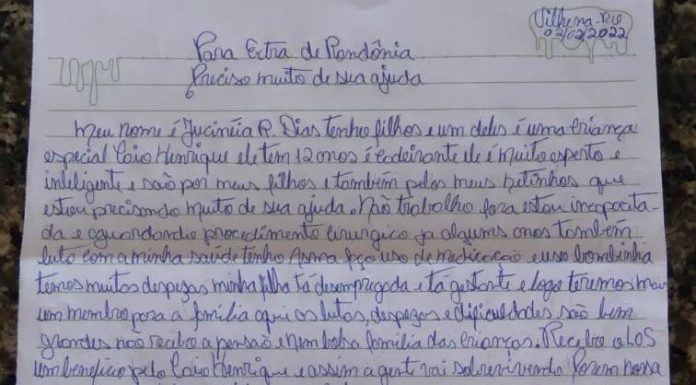 Vilhena-RO
02/02/2022
Para Extra de Rondônia
Preciso muito de sua ajuda
Meu nome é Jucinéia R. Dias tenho filhos e um deles é uma criança
especial Caio Henrique ele tem 12 anos é cadeirante ele é muito esperto e
inteligente e são por meus filhos e também pelos meus netinhos que
estou precisando muito de sua ajuda. Não trabalho fora estou incapacita-
da e aguardando procedimento cirurgico ja alguns anos também
luto com a minha saúde tenho Asma faço uso de medicação e uso bombinha
temos muitos despezas minha filha tá desempregada e tá gestante e logo teremos mais
um membro para a família aqui as lutas, despezas e dificuldades são bem
grandes não recebo a pensão e nem bolsa familia das crianças. Recebo o LOS
um beneficio pelo Caio Henrique e assim a gente vai sobrevivendo Porem nossa